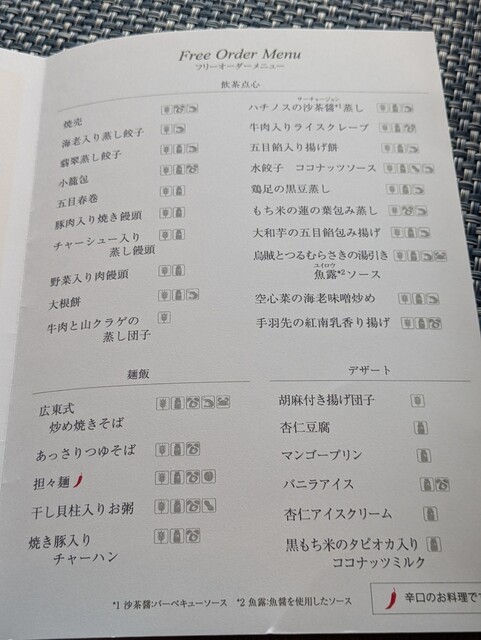 Free Order Menu
フリーオーダーメニュー
飲茶点心
焼売
海老入り蒸し餃子
翡翠蒸し餃子
小籠包
五目春巻
豚肉入り焼き饅頭
チャーシュー入り
蒸し饅頭
野菜入り肉饅頭
大根餅
牛肉と山クラゲの
蒸し団子
サーチャージャン
ハチノスの沙茶醤*1蒸し
牛肉入りライスクレープ
五目餡入り揚げ餅
水餃子 ココナッツソース
鶏足の黒豆蒸し
もち米の蓮の葉包み蒸し
大和芋の五目餡包み揚げ
烏賊とつるむらさきの湯引き
ユイロウ
魚露*2ソース
空心菜の海老味噌炒め
手羽先の紅南乳香り揚げ
麺飯
広東式
炒め焼きそば
あっさりつゆそば
担々麺
干し貝柱入りお粥
焼き豚入り
チャーハン
デザート
胡麻付き揚げ団子
杏仁豆腐
マンゴープリン
バニラアイス
杏仁アイスクリーム
黒もち米のタピオカ入り
ココナッツミルク
辛口のお料理で
*1 沙茶醤:バーベキューソース *2 魚露:魚醤を使用したソース